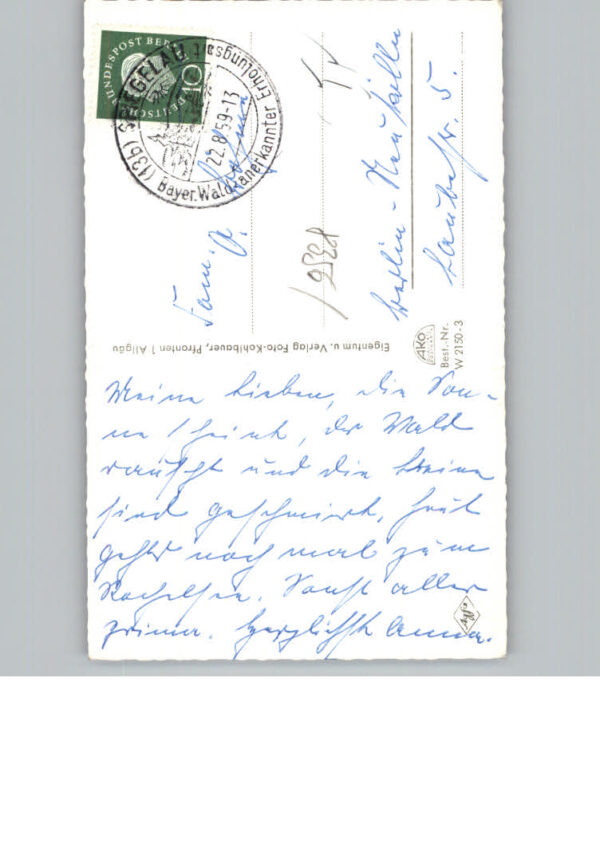 DEUTSCHE BUNDESPOST BERLIN
10
(13b) SPIEGELAU
22.8.59-13
Bayer.Wald anerkannter Erholungsort
Fam.
Berlin-Neukölln
Laubestr. 5.
Eigentum u. Verlag Foto-Kohlbauer, Pfronten 1 Allgäu
Ako
Best.-Nr.
W 2150-3
Meine Lieben, die Son-
ne scheint, der Wald
rauscht und die Beine
sind geschmiert, heut
gehts noch mal zum
Rachelsee. Sonst alles
prima. Herzlichst Anna.
Agfa